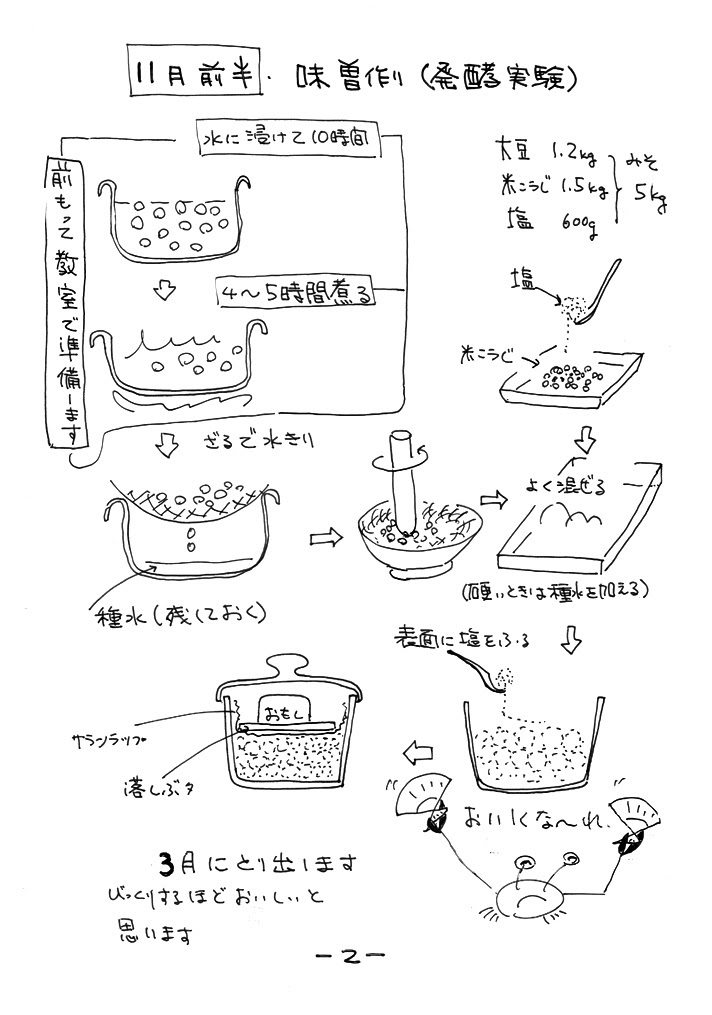 11月前半. 味曽作り(発酵実験)
水に浸けて10時間
前もって教室で準備します
4〜5時間煮る
大豆 1.2kg
米こうじ 1.5kg
塩 600g
みそ
5kg
塩
米こうじ
ざるで水きり
よく混ぜる
種水(残しておく)
(硬いときは種水を加える)
表面に塩をふる
おもし
サランラップ
落しぶタ
おいしくな〜れ.
3月にとり出します
びっくりするほどおいしいと
思います
-2-